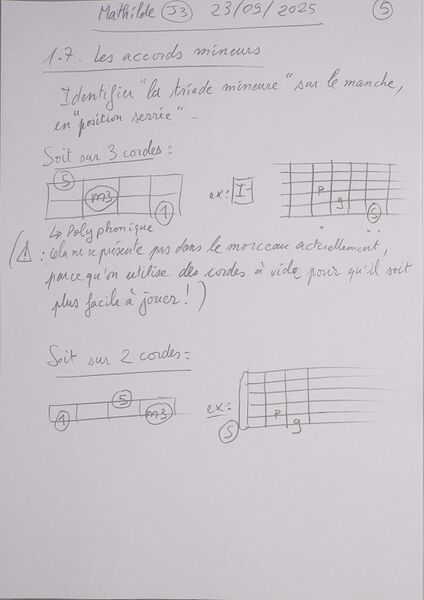 Mathilde J3 23/09/2025 5
1.7. Les accords mineurs
Identifier "la triade mineure" sur le manche,
en "position serrée" -
Soit sur 3 cordes :
5
m3
1
ex: I-
P
g
S
↳ Polyphonique
(⚠ : cela ne se présente pas dans le morceau actuellement,
parce qu'on utilise des cordes à vide pour qu'il soit
plus facile à jouer ! )
Soit sur 2 cordes :
1
5
m3
ex:
S
P
g